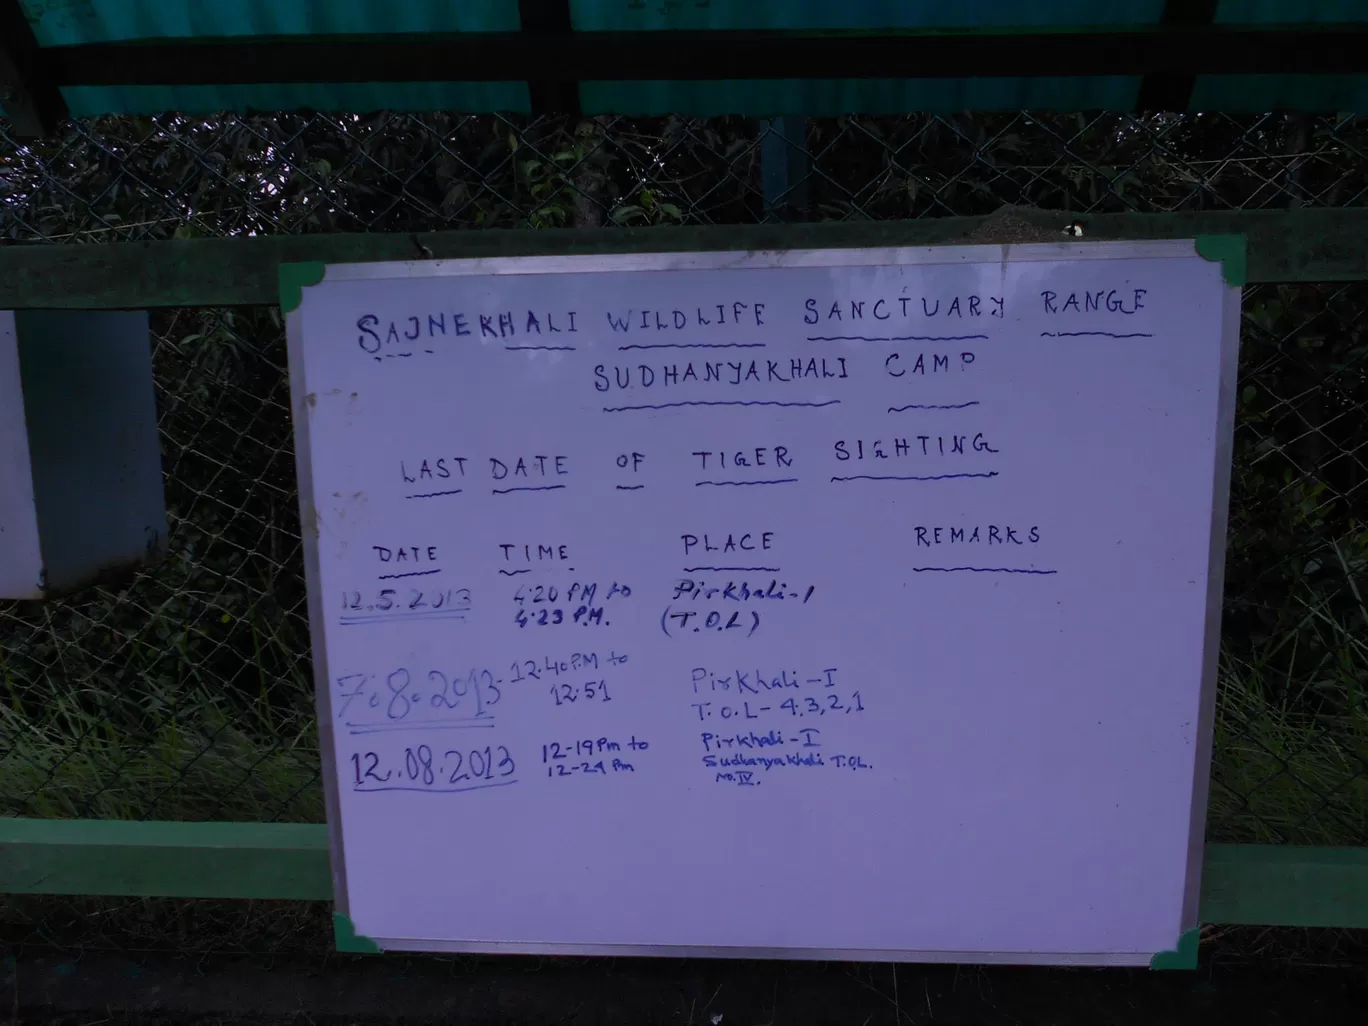 SAJNEKHALI WILDLIFE SANCTUARY RANGE
SUDHANYAKHALI CAMP
LAST DATE OF TIGER SIGHTING
DATE TIME PLACE REMARKS
12.5.2013 4:20 PM to Pirkhali-1
4:23 P.M. (T.O.L)
7.8.2013 12.40 P.M to Pirkhali-I
12.51 T.O.L-4,3,2,1
12.08.2013 12-19 Pm to Pirkhali-I
12-24 Pm Sudhanyakhali T.O.L.
No. IV.